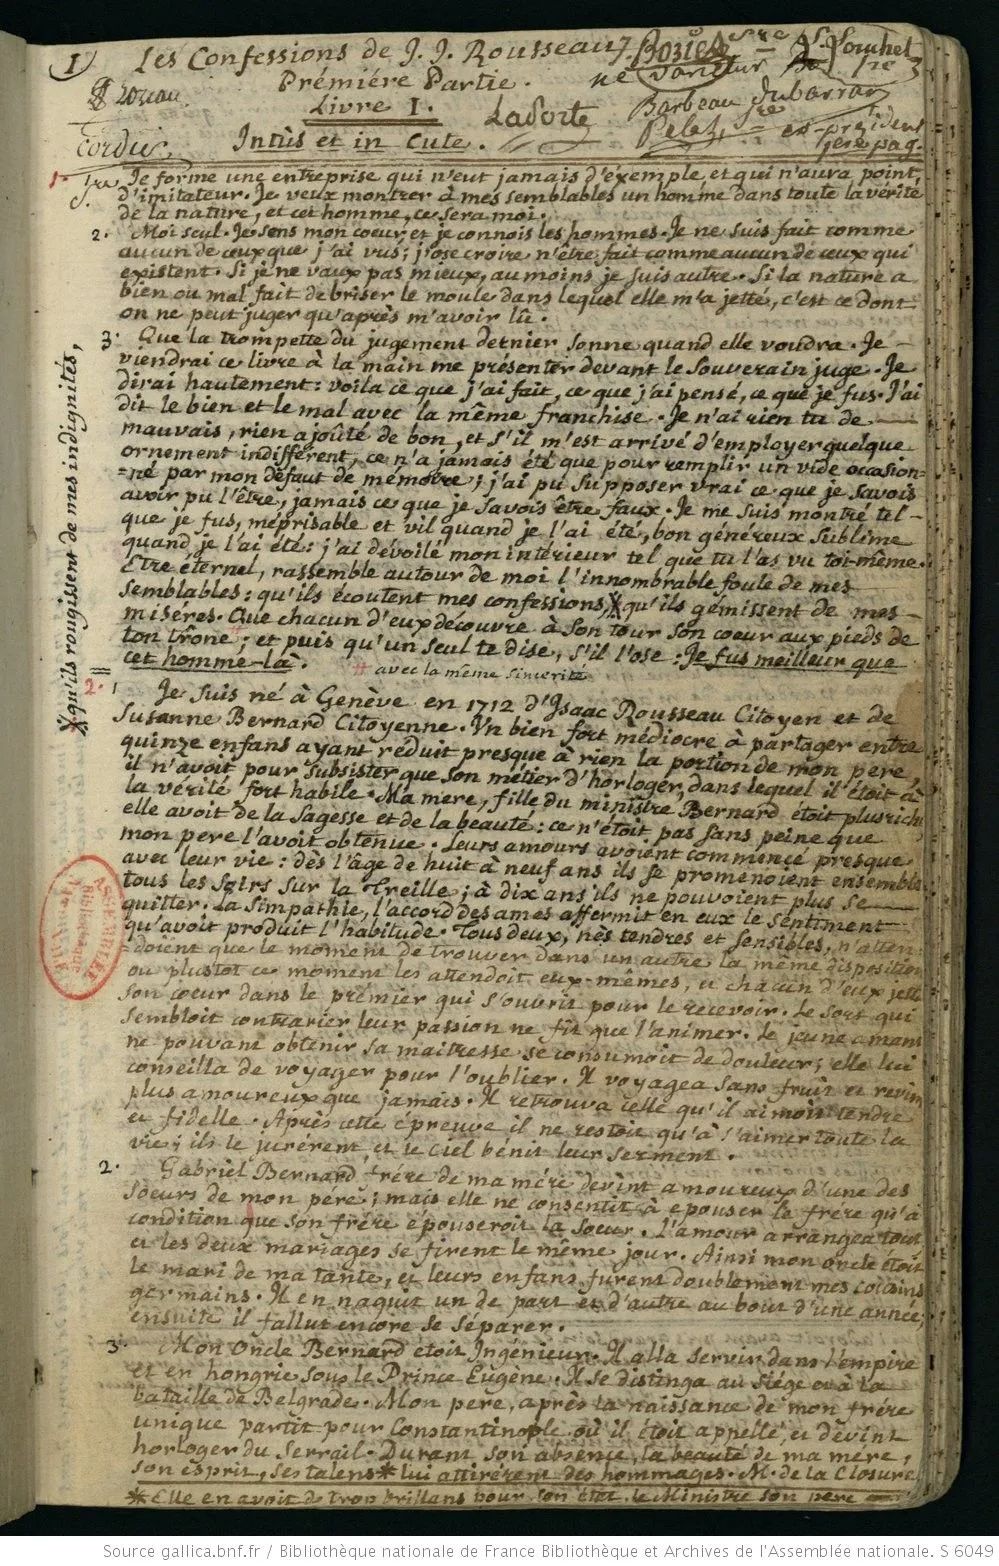 1
Les Confessions de J. J. Rousseau
Prémière Partie.
Livre I.
Intùs et in Cute.
Laporte
Barbeau Dubarran
Pelet
Ex-président
1ere pag.
Je forme une entreprise qui n'eut jamais d'éxemple, et qui n'aura point
d'imitateur. Je veux montrer à mes semblables un homme dans toute la vérité
de la nature, et cet homme, ce sera moi.
2. Moi seul. Je sens mon coeur, et je connois les hommes. Je ne suis fait comme
aucun de ceux que j'ai vus; j'ose croire n'être fait comme aucun de ceux qui
éxistent. Si je ne vaux pas mieux, au moins je suis autre. Si la nature a
bien ou mal fait de briser le moule dans lequel elle m'a jetté, c'est ce dont
on ne peut juger qu'après m'avoir lû.
3. Que la trompette du jugement dernier sonne quand elle voudra. Je
viendrai ce livre à la main me présenter devant le Souverain juge. Je
dirai hautement: voila ce que j'ai fait, ce que j'ai pensé, ce que je fus. J'ai
dit le bien et le mal avec la même franchise. Je n'ai rien tu de
mauvais, rien ajoûté de bon, et s'il m'est arrivé d'employer quelque
ornement indifférent, ce n'a jamais été que pour remplir un vide occasion=
=né par mon défaut de mémoire; j'ai pu supposer vrai ce que je savois
avoir pu l'être, jamais ce que je savois être faux. Je me suis montré tel
que je fus, méprisable et vil quand je l'ai été, bon généreux sublime
quand je l'ai été: j'ai dévoilé mon intérieur tel que tu l'as vu toi-même.
Etre éternel, rassemble autour de moi l'innombrable foule de mes
semblables: qu'ils écoutent mes confessions, qu'ils gémissent de mes
miséres. Que chacun d'eux découvre à son tour son coeur aux pieds de
ton trône; et puis qu'un seul te dise, s'il l'ose. Je fus meilleur que
cet homme-là.
# avec la même sincérité
X qu'ils rougissent de mes indignités,
2. 1 Je suis né à Genève en 1712 d'Isaac Rousseau Citoyen et de
Susanne Bernard Citoyenne. Un bien fort médiocre à partager entre
quinze enfans ayant réduit presque à rien la portion de mon pere,
il n'avoit pour subsister que son métier d'horloger, dans lequel il étoit à
la vérité fort habile. Ma mere, fille du ministre Bernard étoit plus riche
elle avoit de la sagesse et de la beauté: ce n'étoit pas sans peine que
mon pere l'avoit obtenue. Leurs amours avoient commencé presque
avec leur vie: dès l'âge de huit à neuf ans ils se promenoient ensemble
tous les soirs sur la Treille; à dix ans ils ne pouvoient plus se
quitter. La simpathie, l'accord des ames affermit en eux le sentiment
qu'avoit produit l'habitude. Tous deux, nés tendres et sensibles, n'atten
doient que le moment de trouver dans un autre la même disposition
ou plustot ce moment les attendoit eux-mêmes, et chacun d'eux jetta
son coeur dans le prémier qui s'ouvrit pour le recevoir. Le sort qui
sembloit contrarier leur passion ne fit que l'animer. Le jeune amant
ne pouvant obtenir sa maitresse se consumoit de douleur; elle lui
conseilla de voyager pour l'oublier. Il voyagea sans fruit et revint
plus amoureux que jamais. Il retrouva celle qu'il aimoit tendre
et fidelle. Après cette épreuve il ne restoit qu'à s'aimer toute la
vie; ils le jurérent, et le ciel bénit leur serment.
2. Gabriel Bernard frére de ma mére devint amoureux d'une des
soeurs de mon pére; mais elle ne consentit à épouser le frére qu'à
condition que son frére épouseroit la soeur. L'amour arrangea tout
et les deux mariages se firent le même jour. Ainsi mon oncle étoit
le mari de ma tante, et leurs enfans furent doublement mes cousins
germains. Il en naquit un de part et d'autre au bout d'une année;
ensuite il fallut encore se séparer.
3. Mon Oncle Bernard étoit Ingénieur. Il alla servir dans l'empire
et en hongrie sous le Prince Eugène. Il se distinga au siége et à la
bataille de Belgrade. Mon pere, après la naissance de mon frére
unique partit pour Constantinople où il étoit appellé, et devint
horloger du Serrail. Durant son absence, la beauté de ma mére,
son esprit, ses talens * lui attirérent des hommages. M. de la Closure
* Elle en avoit de trop brillans pour son état, le Ministre son pere
ASSEMBLÉE
Source gallica.bnf.fr / Bibliothèque nationale de France Bibliothèque et Archives de l'Assemblée nationale. S 6049